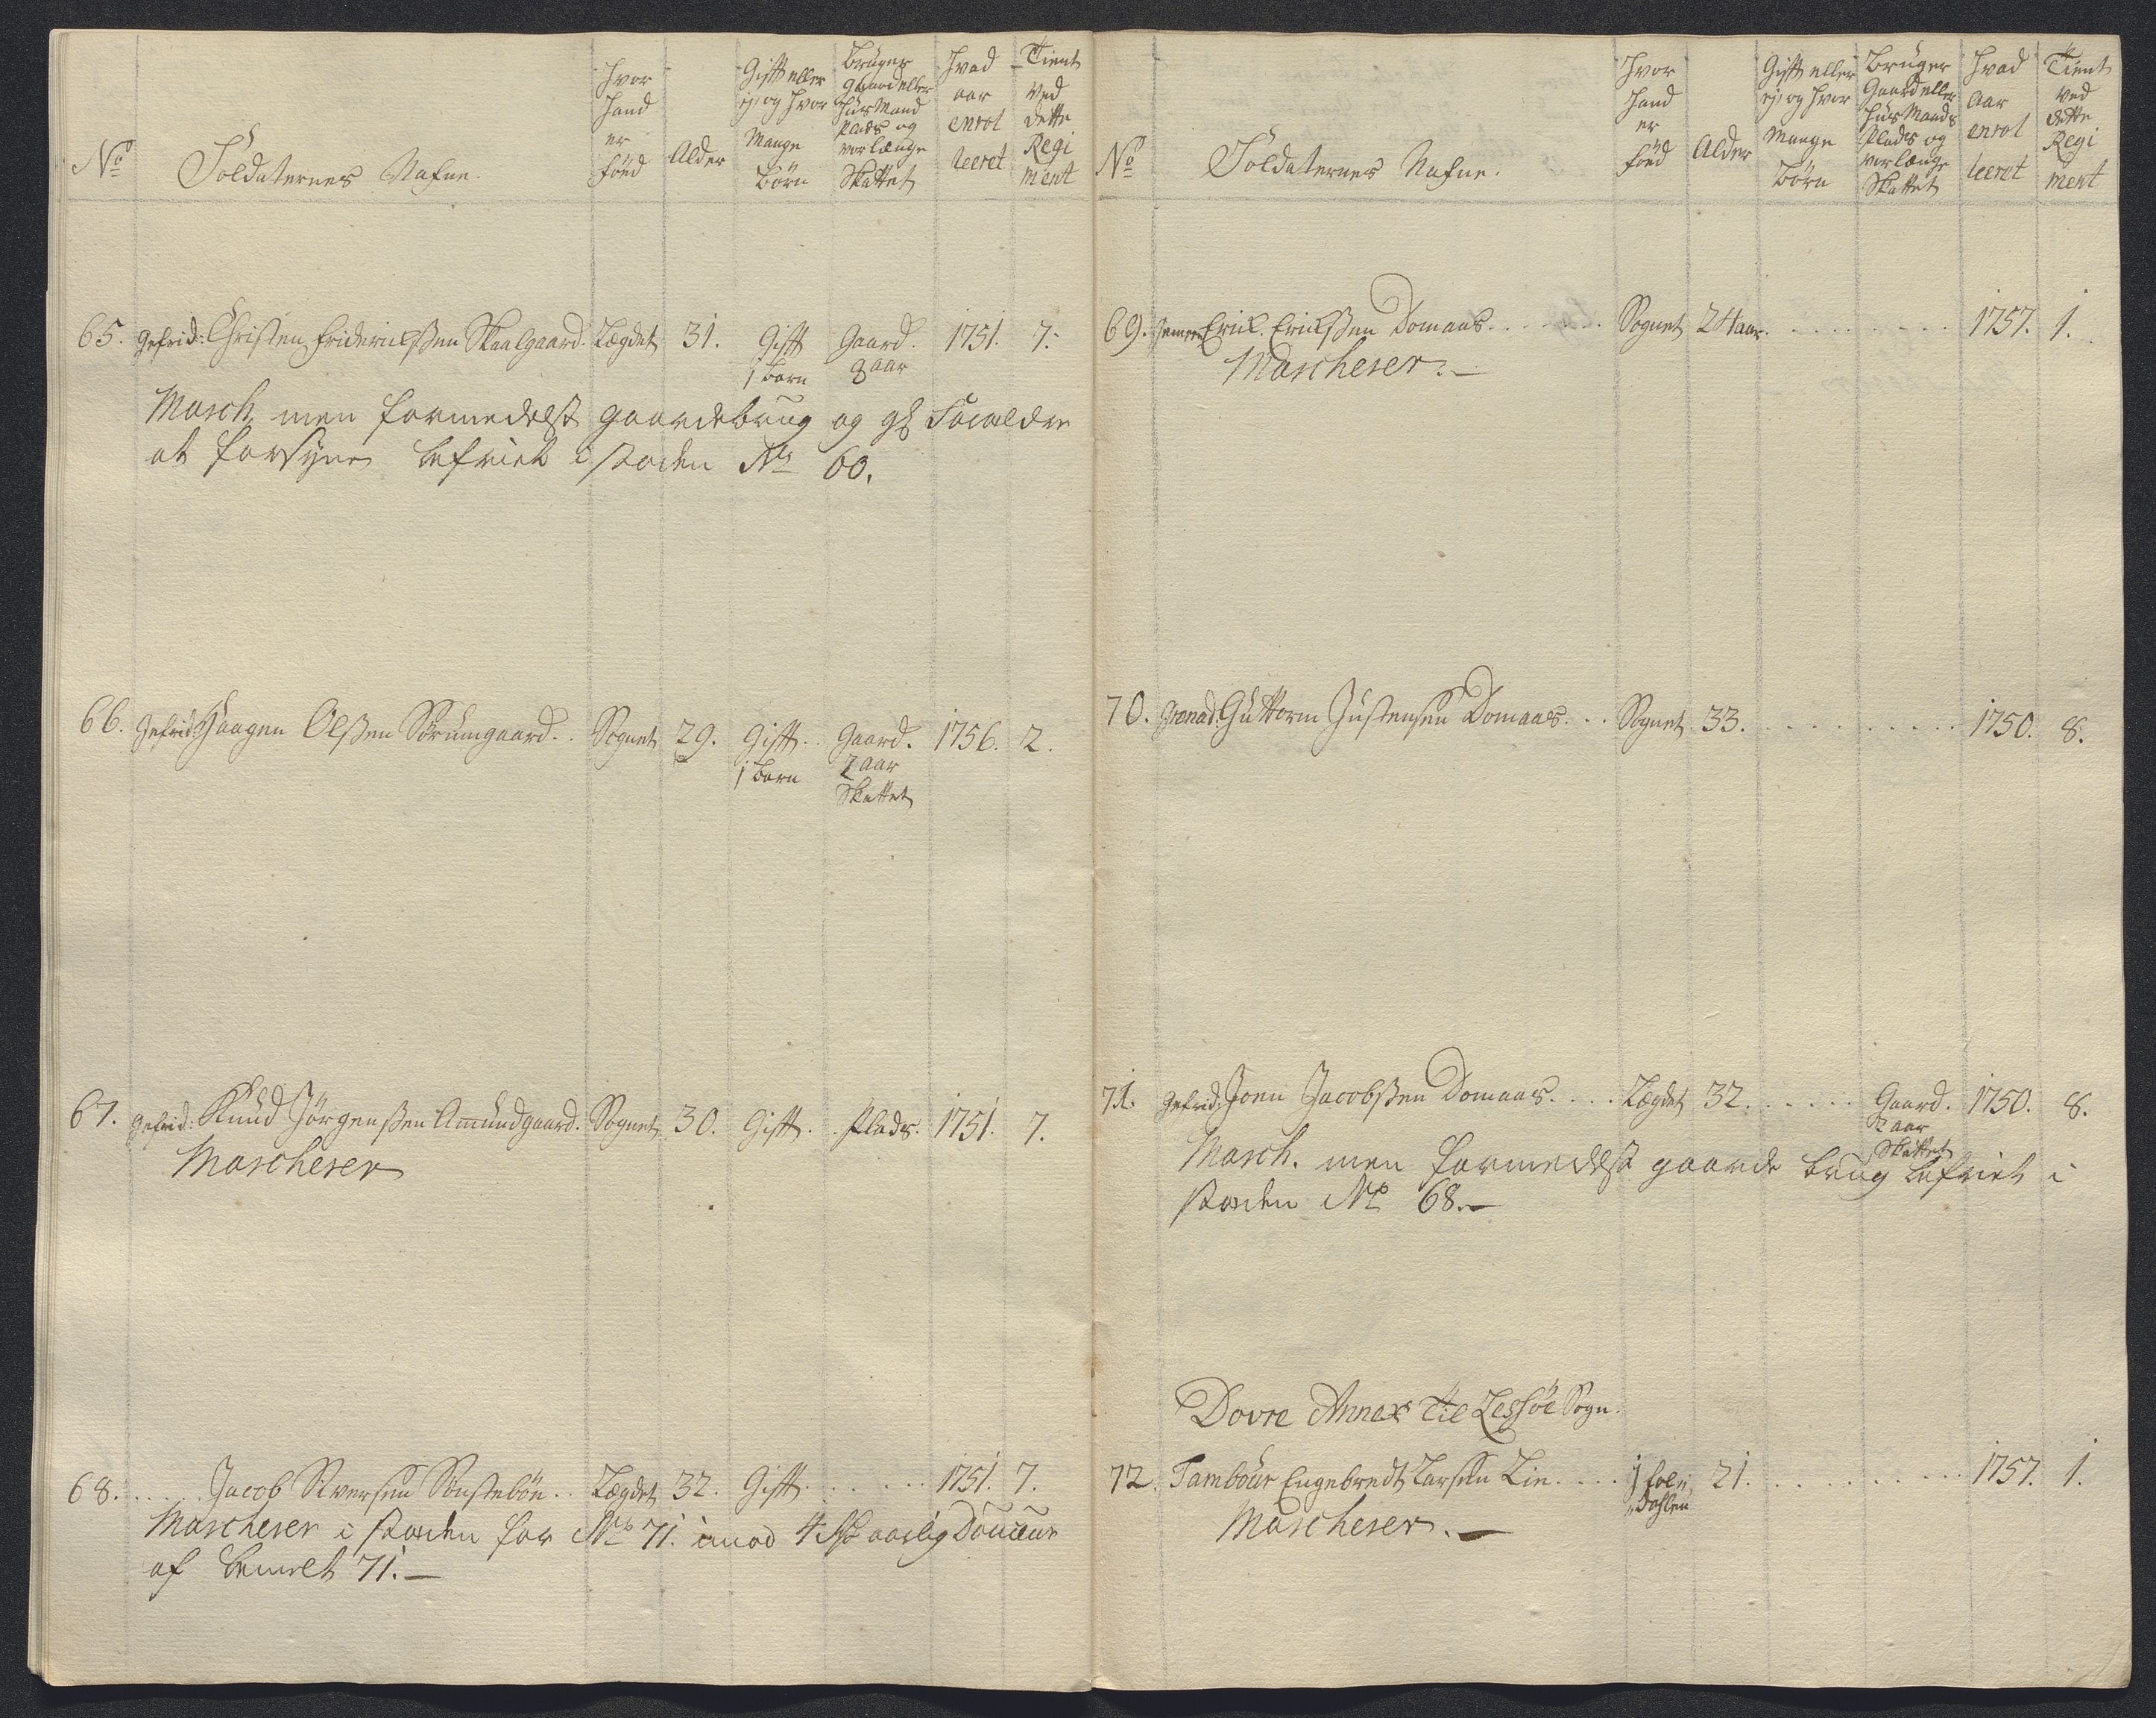 No
Soldaternes Nafne.
Hvor hand er föed
Alder
Gift eller ej, og hvor Mange Börn
Bruger Gaard eller Huusmands Plads og vor længe Skattet
Hvad aar enrolleeret
Tient ved dette Regiment
65. Gefrid: Christen Friderichsen Skaalgaard. Lægdet 31. Gift Gaard. 1751. 7.
1 barn 8 aar
Masch. men formedelst gaardebrug og gl. Forældre
at forsyne befriet i staden No 60.
66. Gefrid: Haagen Olssen Sörumgaard. . Sognet 29. Gift . . Gaard. 1756. 2.
1 barn 2 aar
Skattet
67. Gefrid: Knud Jörgenssen Amundgaard. Sognet 30. Gift . . Plads. 1751. 7.
Mascherer
68. . . . . Jacob Siversen Sönsteböe . . Lægdet 32. Gift . . . . . 1751. 7.
Mascherer i staden for No 71. imod 4 Rdr aarlig Douceur
af bemelt 71. —
No
Soldaternes Nafne.
Hvor hand er föed
Alder
Gift eller ej, og hvor Mange Börn
Bruger Gaard eller Huus Mands Plads og vor længe Skattet
Hvad Aar enrolleeret
Tient ved dette Regiment
69. Erick Ericksen Domaas . . . . . Sognet 24 aar . . . . . . . . 1757. 1.
Mascherer. —
70. Grenad. Guttorm Justensen Domaas . . . Sognet 33. . . . . . . . . . 1750. 8.
71. Gefrid. Joen Jacobssen Domaas . . . . Lægdet 32. . . . . . Gaard. 1750. 8.
2 aar
Skattet
Masch. men formedelst gaarde brug befriet i
staden No 68. —
Dovre Annex til Lessöe Sogn.
72. Tambour Engebredt Larsen Lie . . . . i Foldahlen 21. . . . . . . . . . 1757. 1.
Mascherer. —